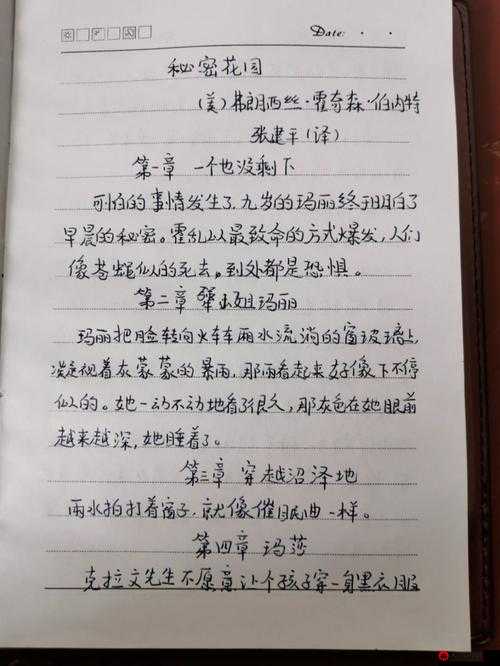 Date: . .
秘密花园
(美)弗朗西丝·霍奇森·伯内特
张建平(译)
第一章 一个也没剩下
可怕的事情发生了,九岁的玛丽终于明白了
早晨的秘密。霍乱以最致命的方式爆发,人们
像苍蝇似的死去。到处都是恐惧。
第二章 犟姐玛丽
玛丽把脸转向火车车雨水流淌的窗玻璃上,
凝视着灰蒙蒙的暴雨,那雨看起来好像下不停
似的。她一动不动地看了很久,那灰色在她眼前
越来越深,她睡着了。
第三章 穿越沼泽地
雨水拍打着窗子,就像催眠曲一样。
第四章 玛莎
克拉文先生不愿意让个孩子穿一身黑衣服